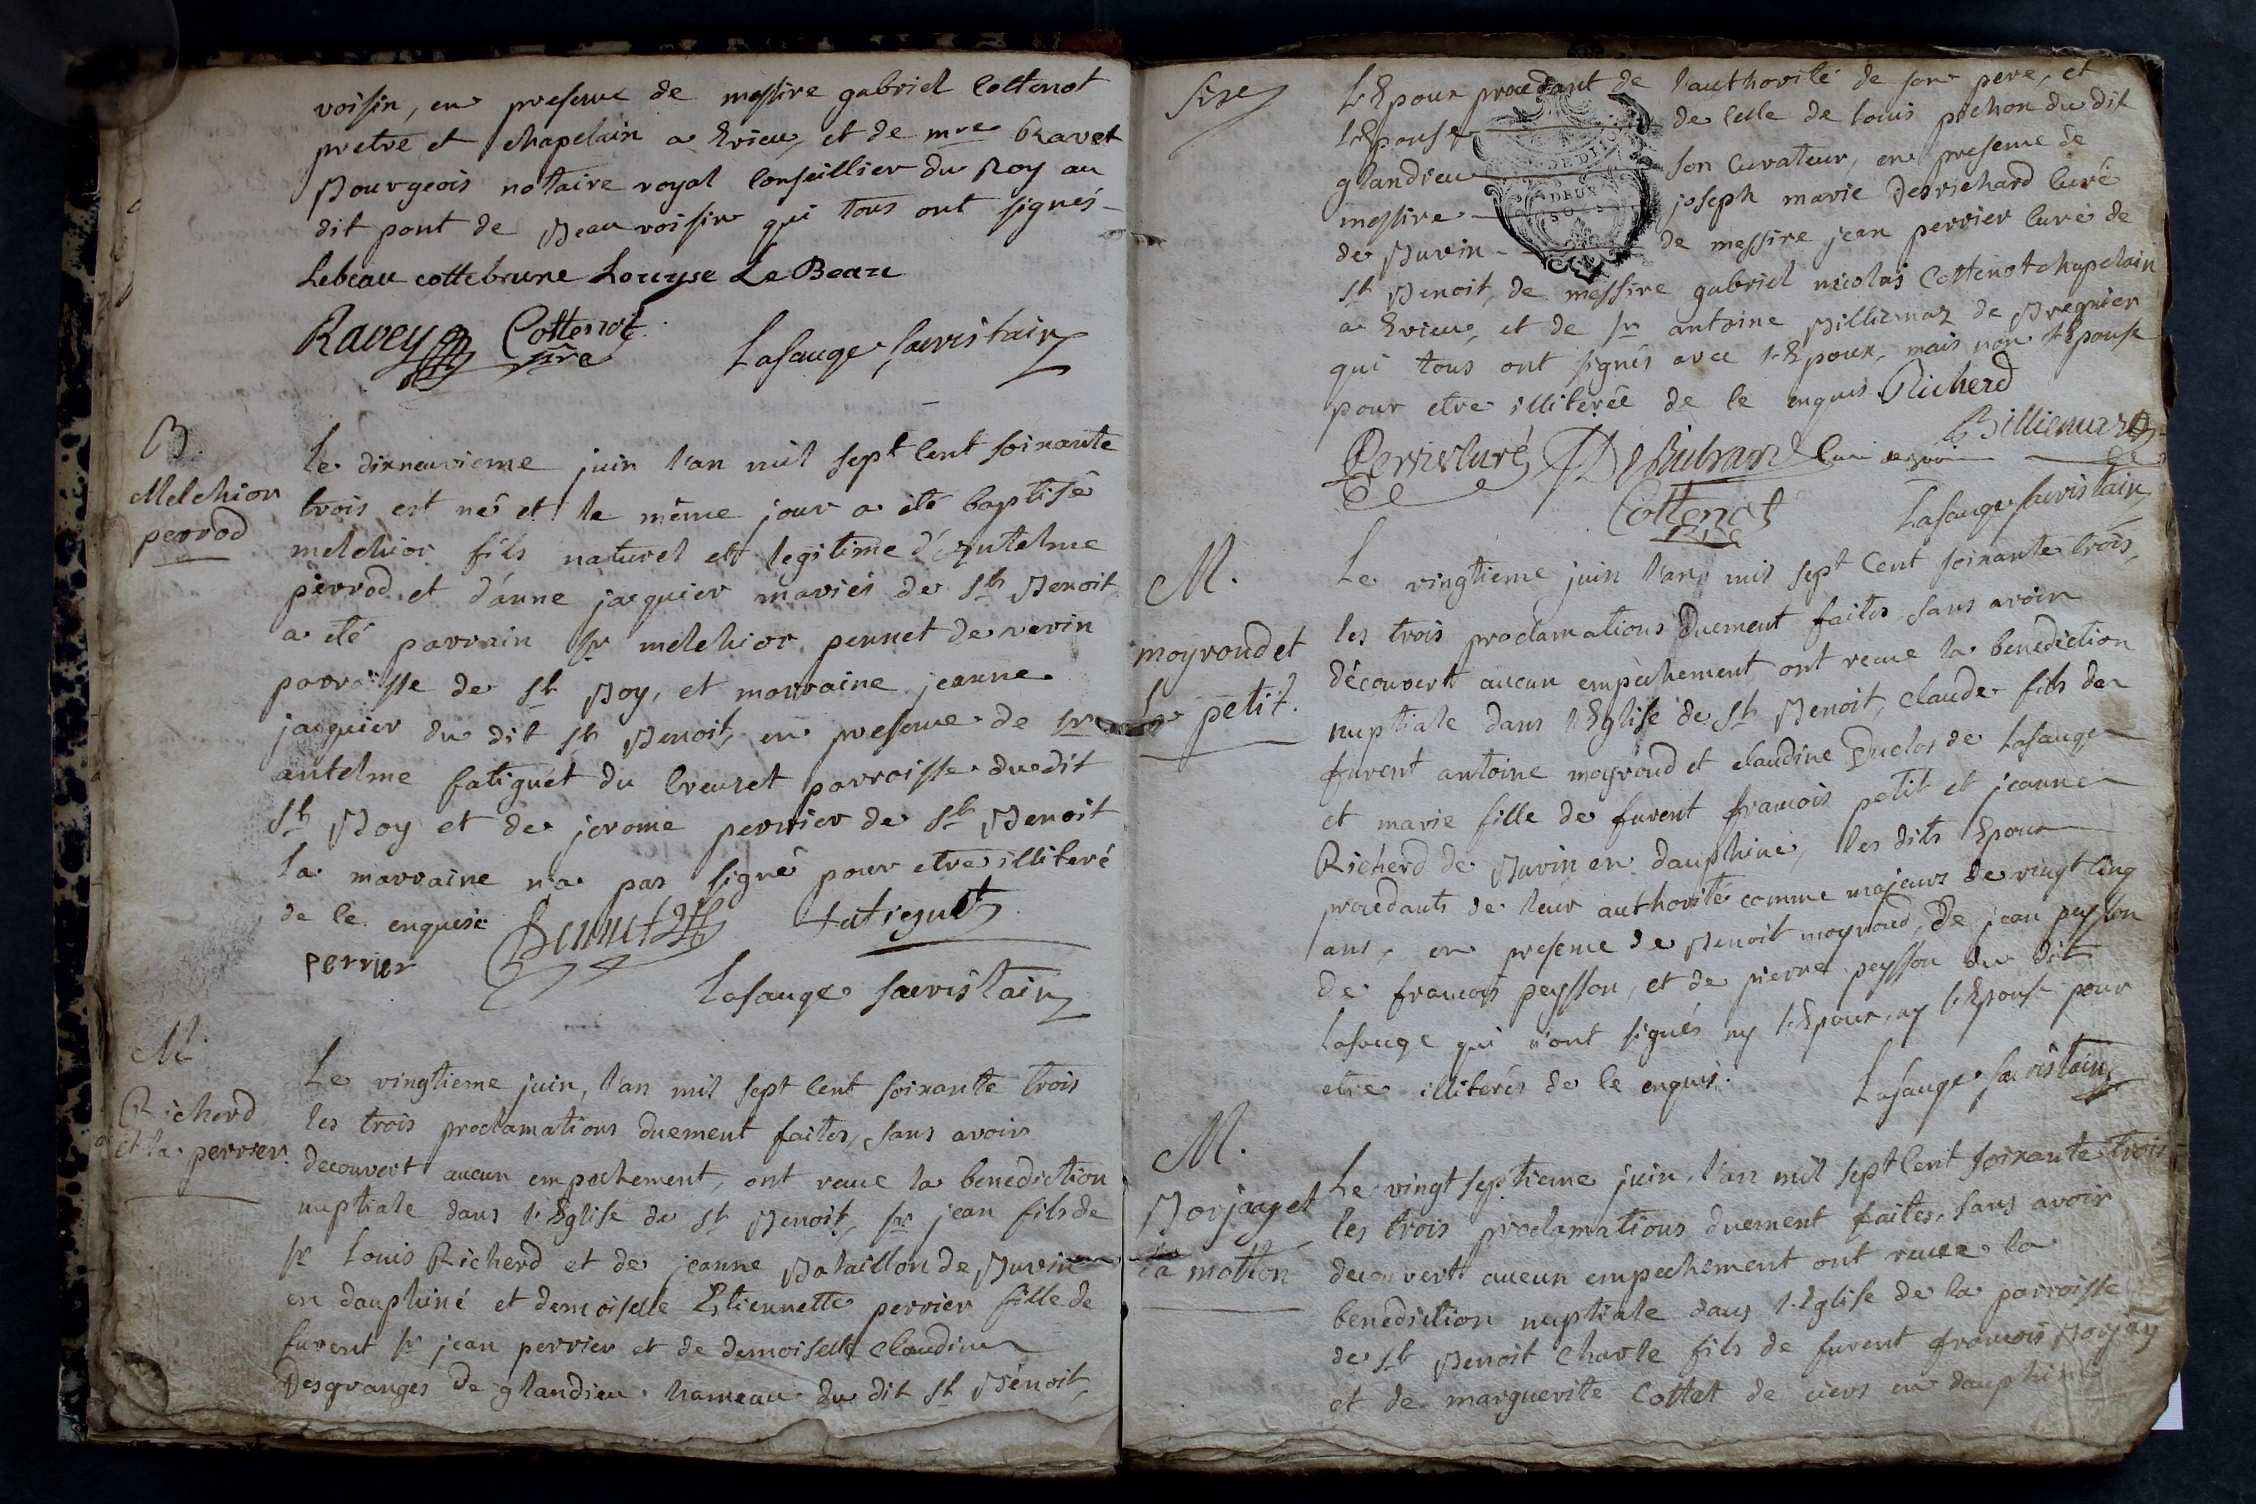 voisin, en presence de messire gabriel Cottenot
pretre et chapelain a Evieu, et de mre Ravet
Bourgeois notaire royal Conseillier du Roy au
dit pont de Beauvoisin qui tous ont signés
Lebeau cottebrune Louyse Le Beau
Ravey Cottenot
ptre
Lasauge, sacristain
B.
Melchior
perrod
Le dixneuvieme juin l'an mil sept Cent soixante
trois est né et le même jour a été baptisé
melchior fils naturel et legitime d'Antelme
perrod et d'anne jacquier mariés de St Benoit
a été parrain Sr melchior pennet de verin
parroisse de St Boy, et marraine jeanne
jacquier du dit St Benoit, en presence de Sr
antelme fatiguet du Creuzet parroisse du dit
St Boy et de jerome perrier de St Benoit
la marraine n'a pas signé pour etre illiteré
de ce enquise
perrier
fatiguet
Lasauge sacristain
M.
Richerd
et la perrier
Le vingtieme juin, l'an mil sept Cent soixante trois
les trois proclamations duement faites, sans avoir
decouvert aucun empechement, ont recue la benediction
nuptiale dans l'Eglise de St Benoit, Sr jean fils de
Sr Louis Richerd et de jeanne Bataillon de Buvin
en dauphiné et demoiselle Etiennette perrier fille de
furent Sr jean perrier et de demoiselle Claudine
Desgranges de glandieu hameau du dit St Benoit,
L'Epoux procedant de l'authorité de son pere, et
l'Epouse de Celle de Louis pichon du dit
glandieu son Curateur, en presence de
messire joseph marie Desrichard Curé
de Buvin de messire jean perrier Curé de
DEUX
SOLS
St Benoit, de messire gabriel nicolas Cottenot chapelain
a Evieu, et de Sr antoine Billiemaz de Bregnier
qui tous ont signés avec l'Epoux, mais non l'Epouse
pour etre illiterée de ce enquis Richerd
Perrier Curé
Billiemaz
Cottenot
ptre
Lasauge sacristain
M.
moyroud et
La petit.
Le vingtieme juin l'an mil sept Cent soixante trois,
les trois proclamations duement faites, sans avoir
découvert aucun empêchement, ont recue la benediction
nuptiale dans l'Eglise de St Benoit, Claude fils de
furent antoine moyroud et claudine Duclos de Lasauge
et marie fille de furent francois petit et jeanne
Richerd de Buvin en dauphiné, les dits Epoux
procedants de leur authorité comme majeurs de vingt Cinq
ans, en presence de Benoit moyroud, de jean peysson
de francois peysson, et de pierre peysson du dit
Lasauge qui n'ont signés ny l'Epoux, ny l'Epouse pour
etre illiterés de ce enquis.
Lasauge sacristain
M.
Borjay et
La motton
Le vingt septieme juin, l'an mil sept Cent soixante trois
les trois proclamations duement faites, sans avoir
decouvert aucun empechement ont recue la
benediction nuptiale dans l'Eglise de la parroisse
de St Benoit Charle fils de furent francois Borjay
et de marguerite Cottet de ciers en dauphiné